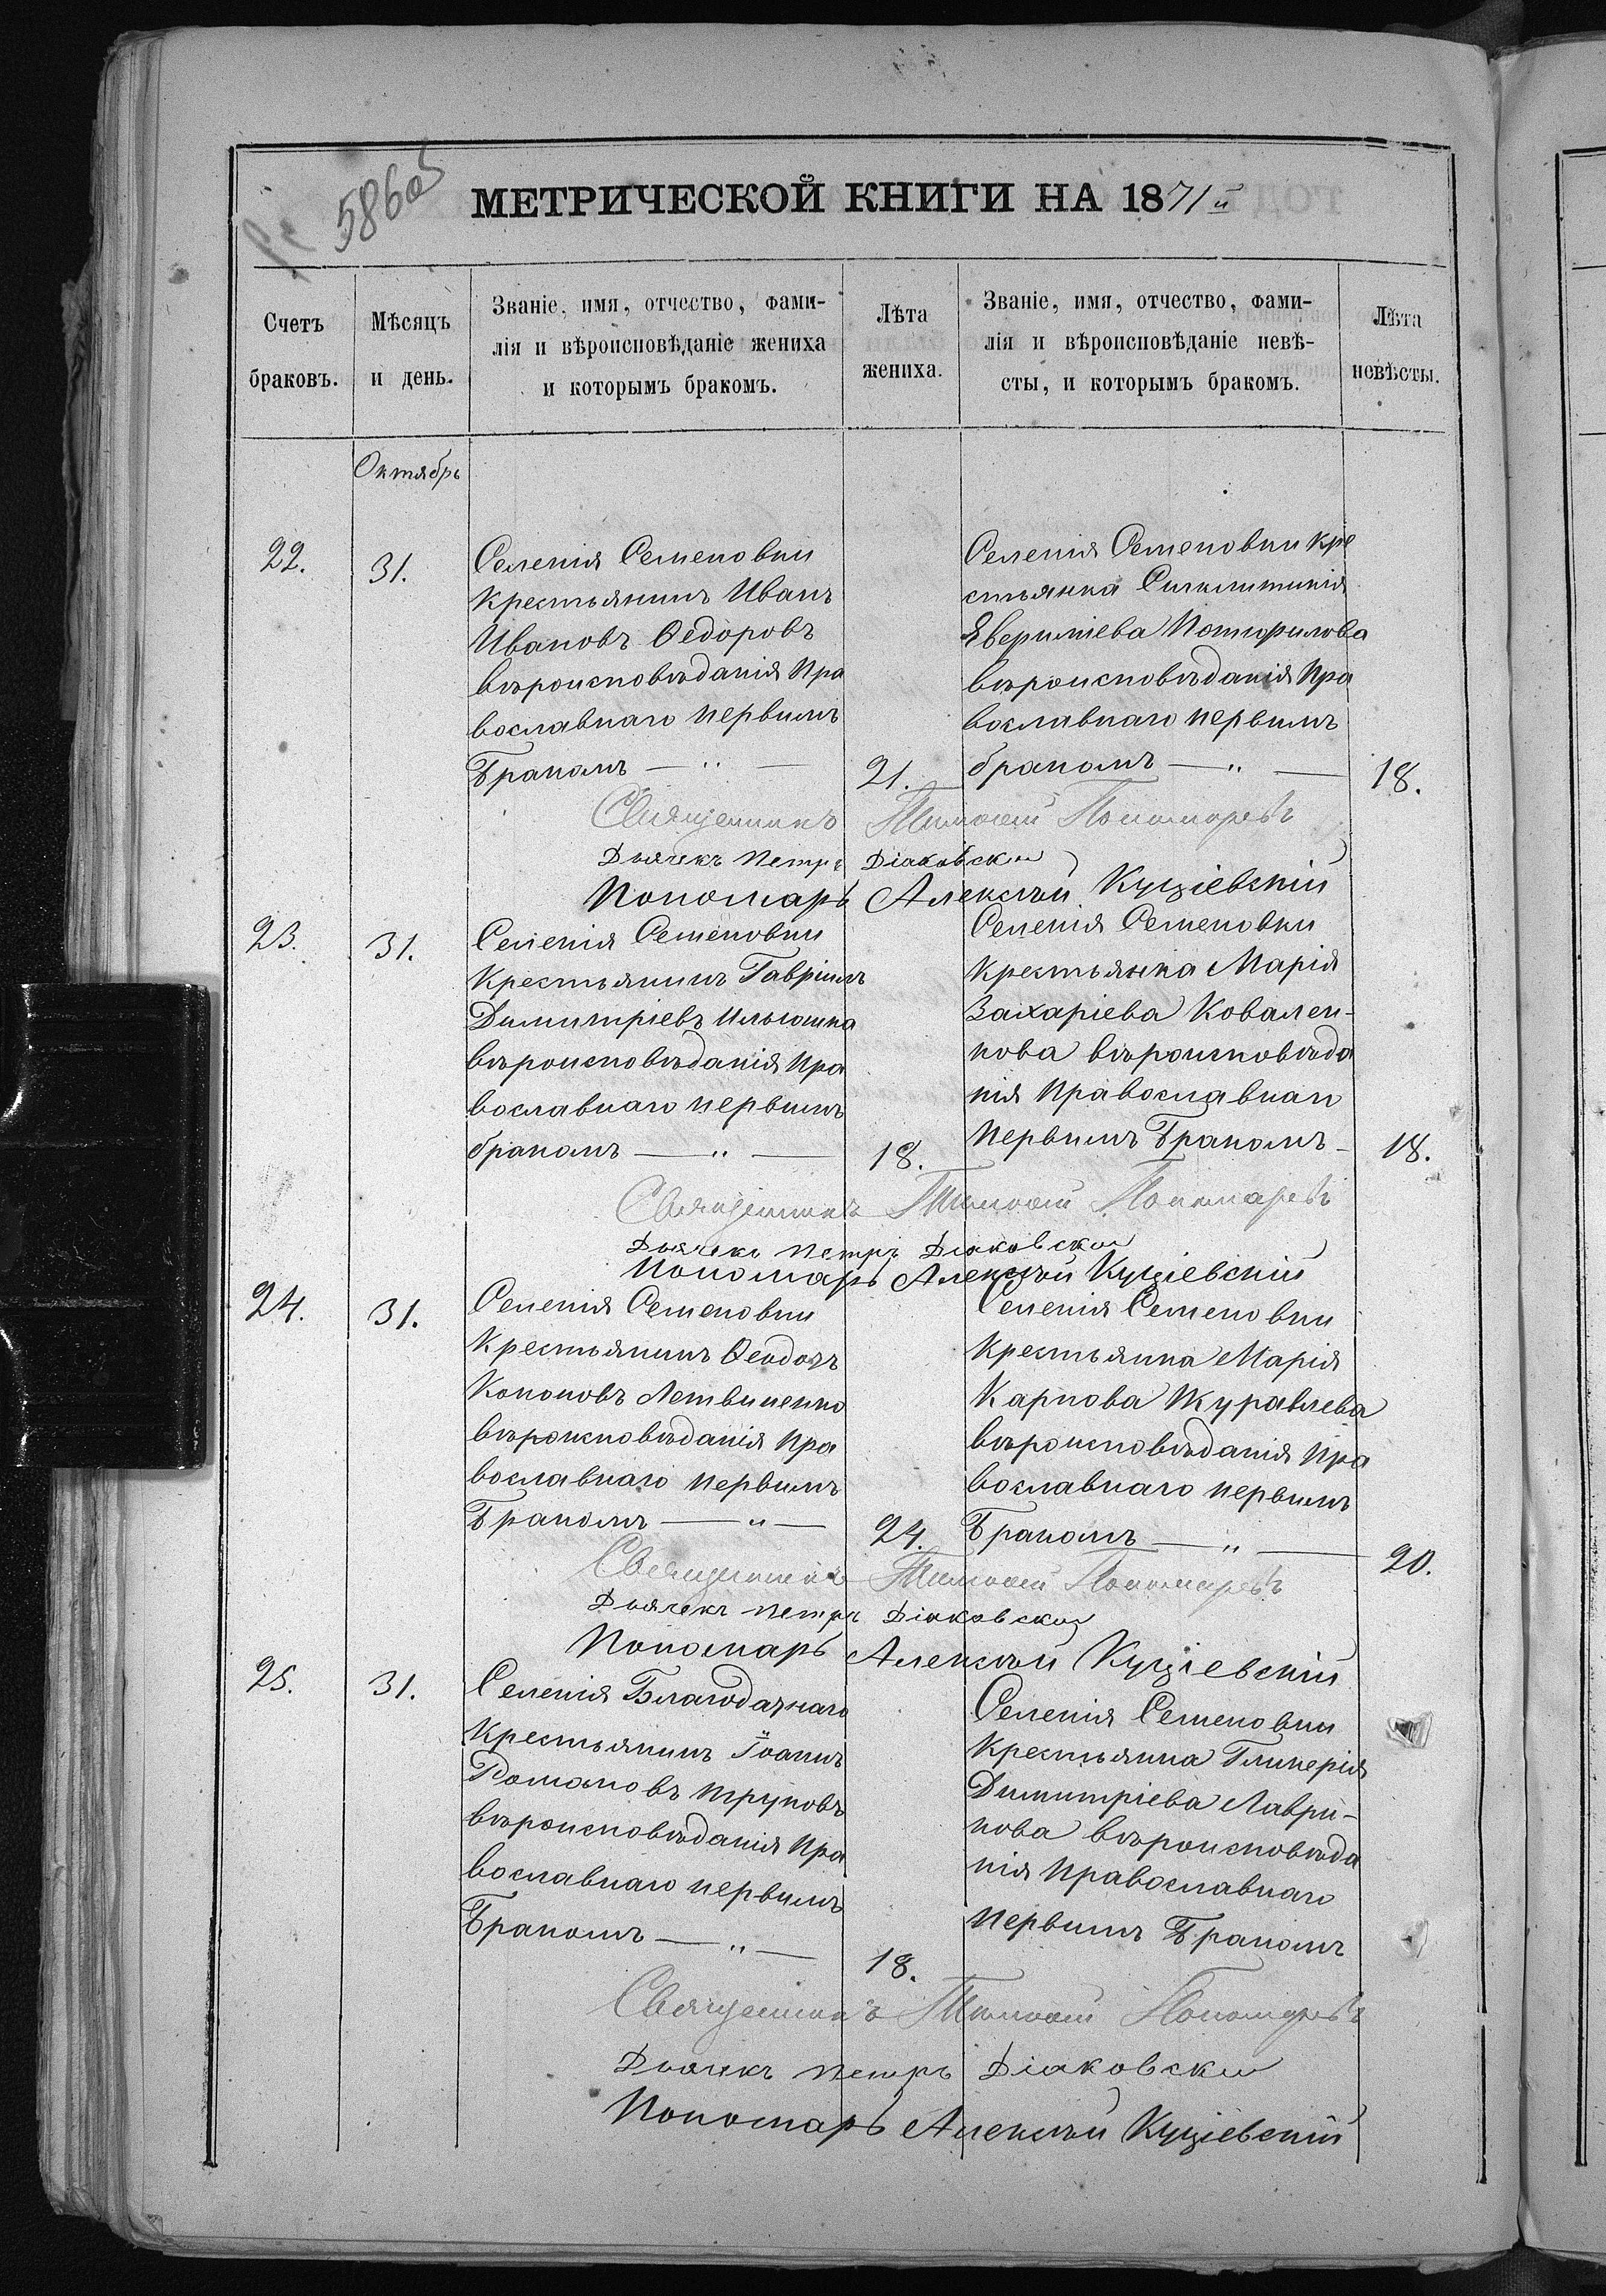 586об
МЕТРИЧЕСКОЙ КНИГИ НА 1871й
Счетъ
браковъ.
Мѣсяцъ
и день.
Званіе, имя, отчество, фами-
лія и вѣроисповѣданіе жениха
и которымъ бракомъ.
Лѣта
жениха.
Званіе, имя, отчество, фами-
лія и вѣроисповѣданіе невѣ-
сты, и которымъ бракомъ.
Лѣта
невѣсты.
Октябрь
22.
31.
Селенія Семеновки
Крестьянинъ Иванъ
Ивановъ Ѳедоровъ
вѣроисповѣданія Пра
вославнаго первымъ
бракомъ — „ —
21.
Селенія Семеновки Кре
стьянка Синклитикія
Потифилова
вѣроисповѣданія Пра
вославнаго первымъ
бракомъ — „ —
18.
Священникъ Тимоѳей Пономаревъ
Дьячекъ Петръ Діаковскій
Пономарь Алексѣй Куціевскій
23.
31.
Селенія Семеновки
Крестьянинъ Гавріилъ
Димитріевъ Ильюшка
вѣроисповѣданія Пра
вославнаго первымъ
бракомъ — „ —
18.
Селенія Семеновки
Крестьянка Марія
Захаріева Ковален-
кова вѣроисповѣда
нія Православнаго
Первымъ Бракомъ -
18.
Священникъ Тимоѳей Пономаревъ
Дьячекъ Петръ Діаковскій
Пономарь Алексѣй Куціевскій
24.
31.
Селенія Семеновки
Крестьянинъ Ѳеодотъ
Кононовъ Летвиненко
вѣроисповѣданія Пра
вославнаго первымъ
Бракомъ — „ —
24.
Селенія Семеновки
Крестьянка Марія
Карпова Журавлева
вѣроисповѣданія Пра
вославнаго первымъ
Бракомъ — „ —
20.
Священникъ Тимоѳей Пономаревъ
Дьячекъ Петръ Діаковскій
Пономарь Алексѣй Куціевскій
25.
31.
Селенія Благодарнаго
Крестьянинъ Іоаннъ
Романовъ Труновъ
вѣроисповѣданія Пра
вославнаго первымъ
Бракомъ — „ —
18.
Селенія Семеновки
Крестьянка Гликерія
Димитріева Лаври-
кова вѣроисповѣда
нія Православнаго
Первымъ Бракомъ
Священникъ Тимоѳей Пономаревъ
Дьячекъ Петръ Діаковскій
Пономарь Алексѣй Куціевскій